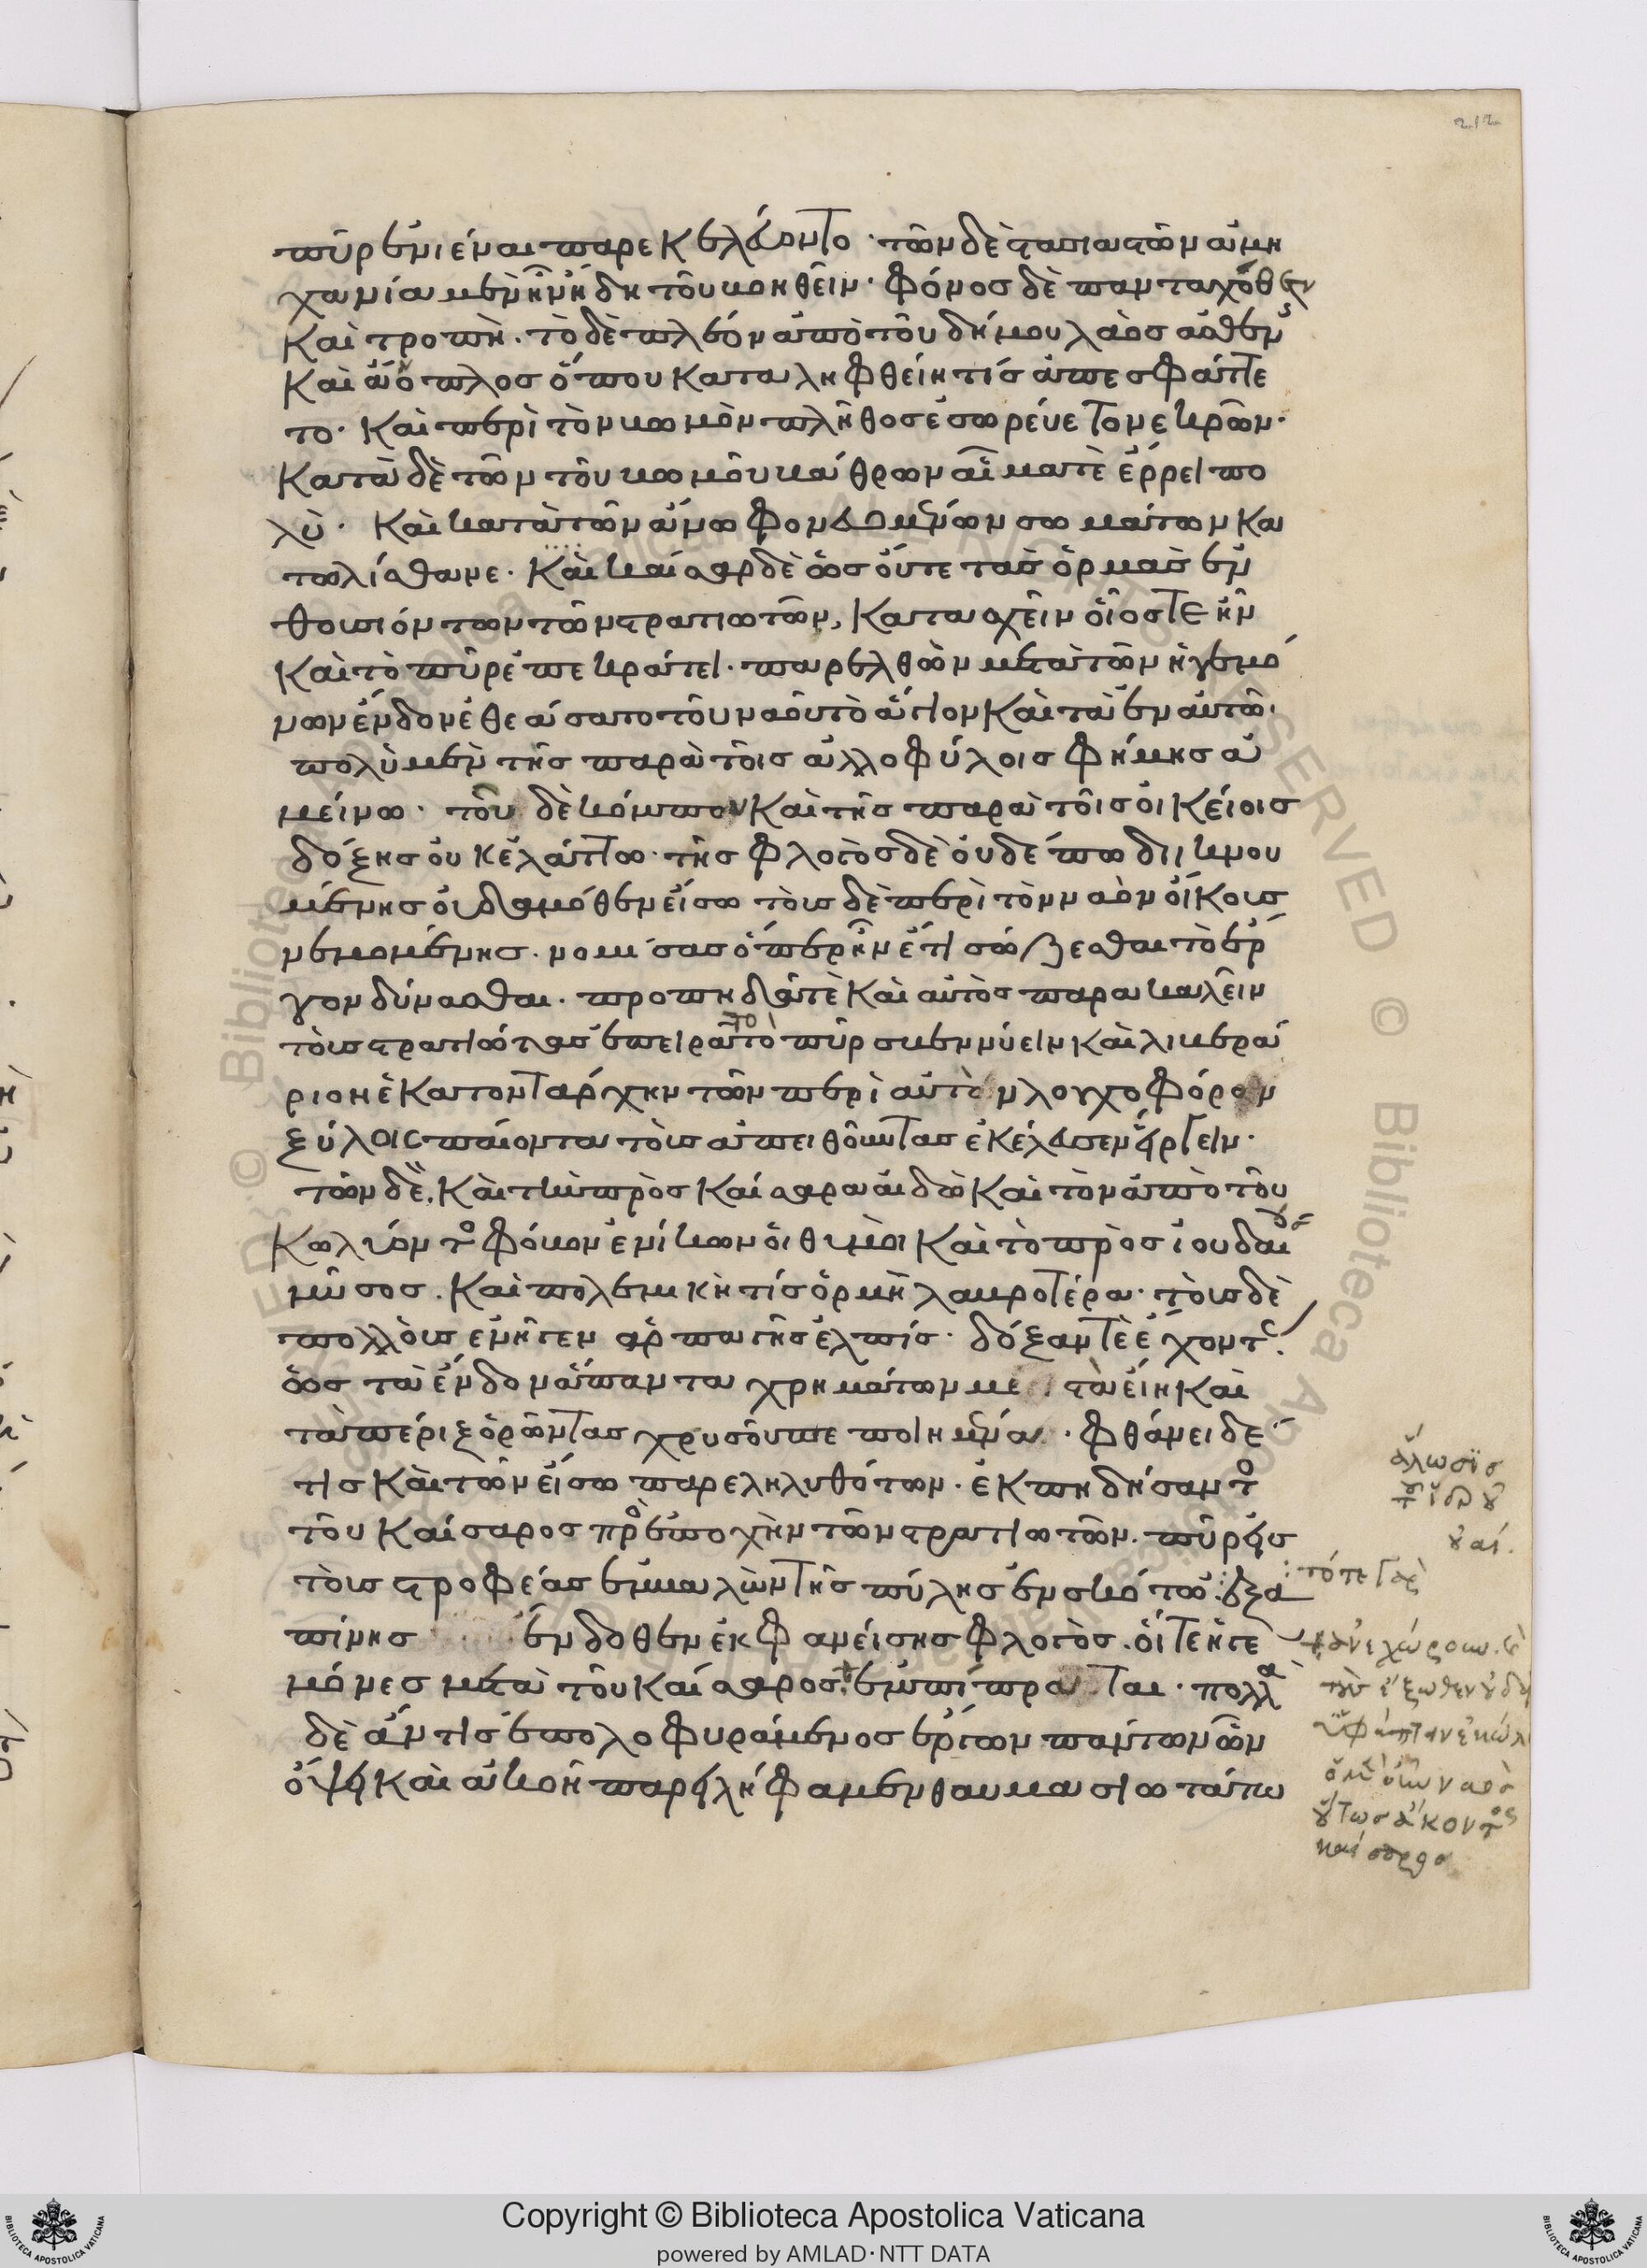 212
πῦρ ἐνιέναι παρεκελεύοντο· τῶν δὲ στασιαστῶν ἀμη
χανία μὲν ἦν ἤδη τοῦ βοηθεῖν· φόνος δὲ πανταχόθεν
καὶ τροπή. τὸ δὲ πλέον ἀπὸ τοῦ δήμου λαὸς ἀσθεν
καὶ ἄοπλος ὅπου καταληφθείη τίς ἀπεσφάττε
το· καὶ περὶ τὸν βωμὸν πλῆθος ἐσωρεύετο νεκρῶν·
κατὰ δὲ τῶν τοῦ βωμοῦ βάθρων αἷμά τε ἔρρει πο
λὺ· καὶ κατὰ τῶν ἄνω φονευομένων σωμάτων κα
τωλίσθανε· καὶ καῖσαρ δὲ ὡς οὔτε τὰς ὁρμὰς ἐν
θουσιόντων τῶν στρατιωτῶν, κατασχεῖν οἷός τε ἦν
καὶ τὸ πῦρ ἐπεκράτει· παρελθὼν μετὰ τῶν ἡγεμό
νων ἔνδον ἐθεάσατο τοῦ ναοῦ τὸ ἅγιον καὶ τὰ ἐν αὐτῶ·
πολὺ μὲν τῆς παρὰ τοῖς ἀλλοφύλοις φήμης ἀ
μείνω· τοῦ δὲ κόμπου καὶ τῆς παρὰ τοῖς οἰκείοις
δόξης οὐκ ἐλάττω· τῆς φλογὸς δὲ οὐδέπω διικνου
μένης οὐδαμόθεν εἴσω τοὺς δὲ περὶ τὸν ναὸν οἴκους
νεμομένης· νομίσας ὅπερ ἦν ἔτι σώζεσθαι τὸ ἔρ
γον δύνασθαι· προπηδᾶ τὲ καὶ αὐτὸς παρακαλεῖν
τοὺς στρατιώτας ἐπειρᾶτο τὸ πῦρ σβεννύειν καὶ λιβερά
ριον ἑκατοντάρχην τῶν περὶ αὐτὸν λογχοφόρων
ξύλοις παίοντα τοὺς ἀπειθοῦντας ἐκέλευσεν εἴργειν·
τῶν δὲ, καὶ τὴν πρὸς καίσαρα αἰδῶ καὶ τὸν ἀπὸ τοῦ
κωλύοντος φόβον ἐνίκων οἱ θυμοὶ καὶ τὸ πρὸς ἰουδαίους
μῖσος. καὶ πολεμική τις ὁρμὴ λαβροτέρα· τοὺς δὲ
πολλοὺς ἐνῆγεν ἁρπαγῆς ἐλπίς· δόξαν τὲ ἔχοντας
ὡς τὰ ἔνδον ἅπαντα χρημάτων με στὰ εἴη καὶ
τὰ πέριξ ὁρῶντας χρυσοῦ πεποιημένα. φθάνει δέ
τις καὶ τῶν εἴσω παρεληλυθότων· ἐκπηδήσαντος
τοῦ καίσαρος πρὸς ἐποχὴν τῶν στρατιωτῶν· πῦρ εἰς
τοὺς στροφέας ἐμβαλὼν τῆς πύλης ἐν σκότω· ἐξα
πίνης ἔνδοθεν ἐκφανείσης φλογὸς· οἵ τε ἡγε
μόνες μετὰ τοῦ καίσαρος· ἐμπίπραται· πολλὰ
δὲ ἄν τις ἐπολοφυράμενος ἔργων πάντων ὧν
ὄψει καὶ ἀκοῇ παρειλήφαμεν θαυμασιωτάτω
ἅλωσις
τότε γὰρ
ἀνεχώρουν·
τοὺς ἔξωθεν οὐδεὶς
ὑφάπτειν ἐκώλ
ὁ μὲν οὖν ναὸς
οὕτως ἄκοντος
καίσαρος
Copyright © Biblioteca Apostolica Vaticana
powered by AMLAD·NTT DATA